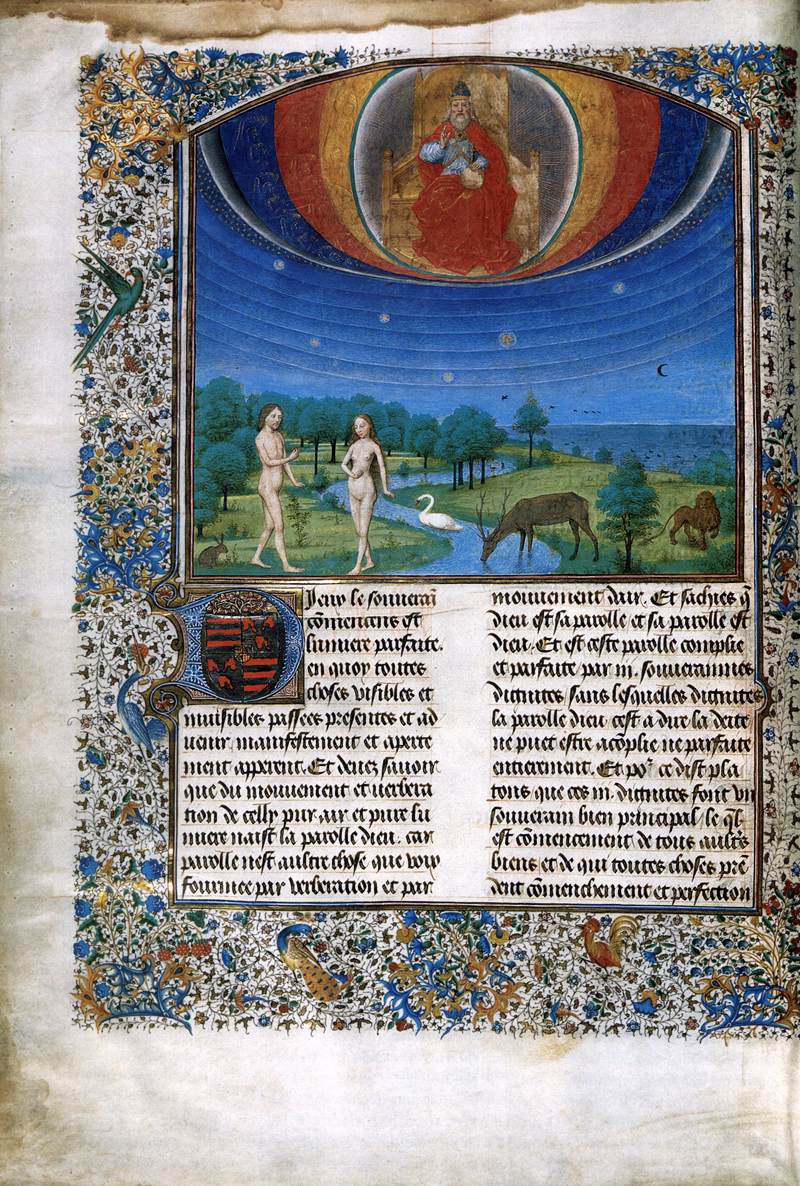 Dieux le souverain
cōmencans est
lumiere parfaite.
en quoy toutes
choses visibles et
inuisibles passees presentes et ad
uenir, manifestement et aperte
ment apperent. Et deuez sauoir
que du mouuement et uerbera
tion de celly pur air et pure lu
miere naist la parolle dieu, car
parolle nest aultre chose que voix
fourmee par verberation et par
mouuement dair. Et sachies q̄
dieu est sa parolle et sa parolle est
dieu. Et est ceste parolle complie
et parfaite par .iii. souuerainnes
dictnites sans lesquelles dictnites
la parolle dieu cest a dire la deite
ne puet estre acōplie ne parfaite
entierement. Et po᷑ ce dist pla
tons que ces .iii. dictnites font vn
souuerain bien principal, le q̄l
est cōmencement de tous ault᷑s
biens et de qui toutes choses prē
dent cōmenchement et perfection